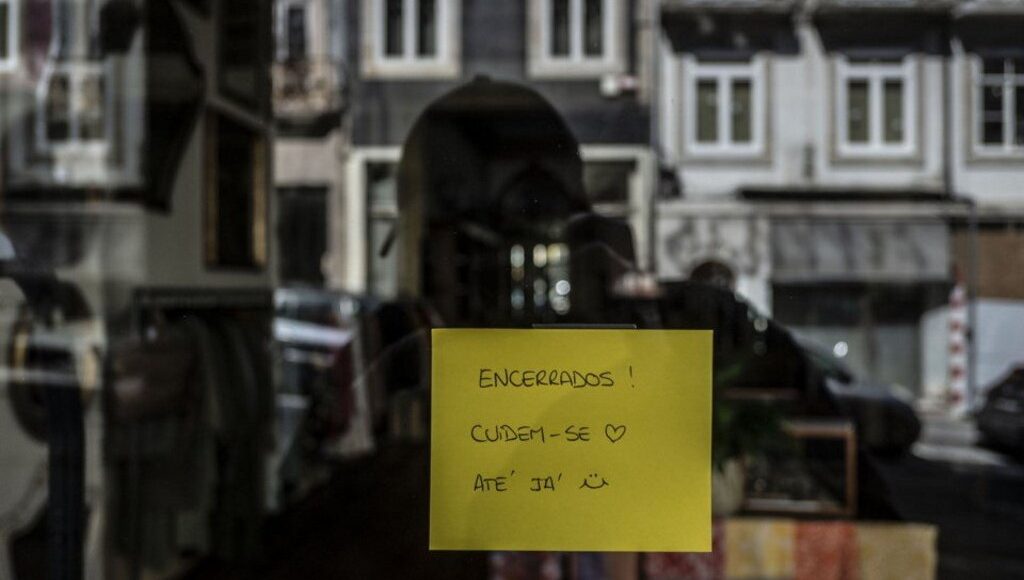 ENCERRADOS !
CUIDEM-SE ♡
ATÉ JÁ ü